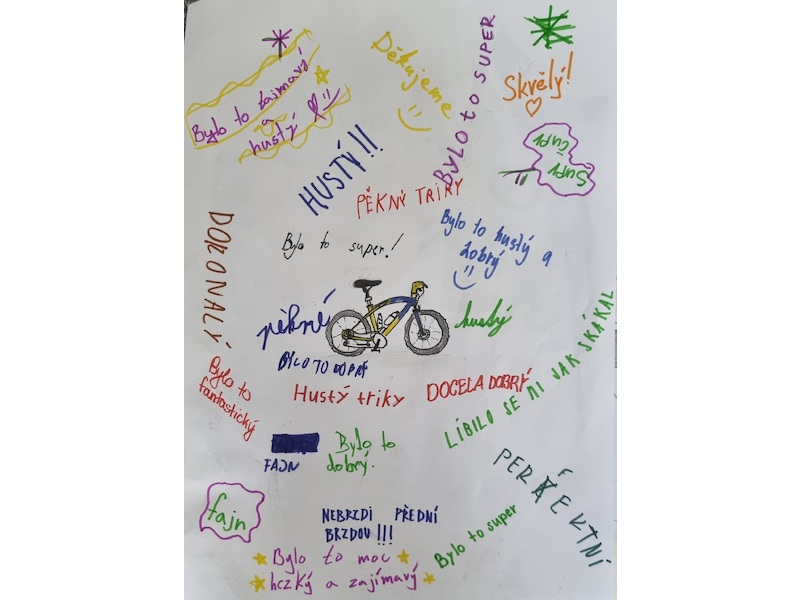 Bylo to zajímavý
a
hustý
Děkujeme
BYLO to SUPER
Skvělý!
ČUPr
ŠuPr
HUSTÝ!!
PĚKNÝ TRIKY
Bylo to hustý a
dobrý
Bylo to super!
DOKONALÝ
pěkné
hustý
BYLO TO DOBRÝ
LÍBILO SE MI JAK SKÁKAL
Bylo to
fantastický
Hustý triky
DOCELA DOBRÝ
FAJN
Bylo to
dobrý.
PERFEKTNÍ
fajn
NEBRZDI PŘEDNÍ
BRZDOU!!!
Bylo to super
Bylo to moc
hezký a zajímavý